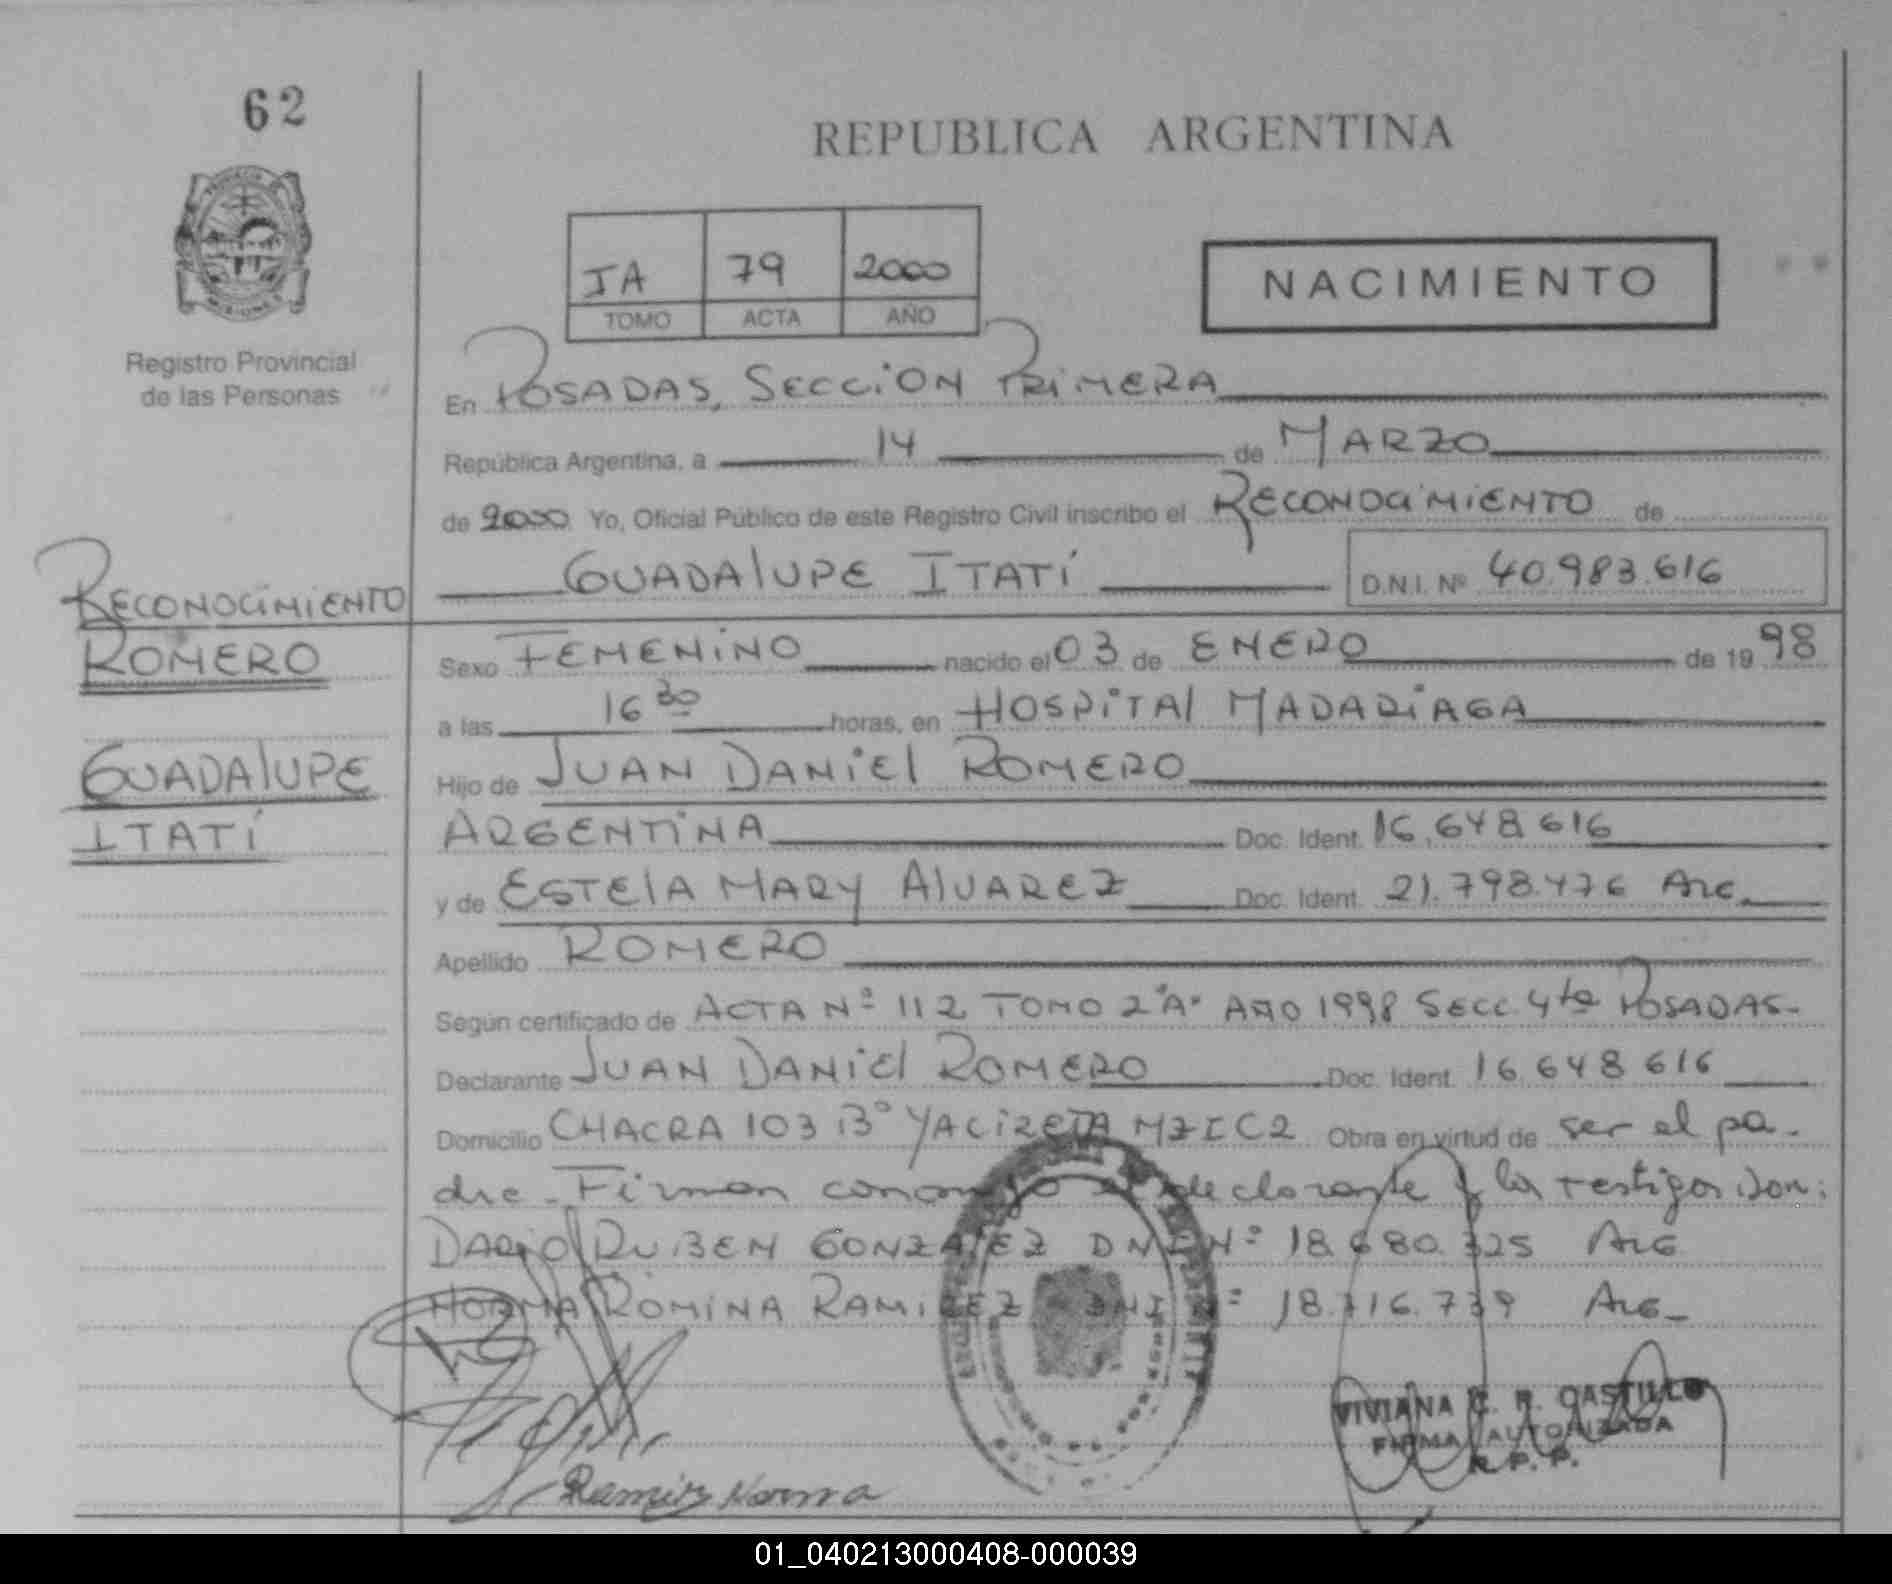 62
REPUBLICA ARGENTINA
IA 79 2000
TOMO ACTA AÑO
NACIMIENTO
Registro Provincial
de las Personas
En POSADAS, SECCION PRIMERA
República Argentina, a 14 de MARZO
de 2000 Yo, Oficial Público de este Registro Civil inscribo el RECONOCIMIENTO de
GUADALUPE ITATÍ D.N.I. Nº 40.983.616
RECONOCIMIENTO
ROMERO
GUADALUPE
ITATÍ
Sexo FEMENINO nacido el 03 de ENERO de 1998
a las 16 30 horas, en HOSPITAL MADARIAGA
Hijo de JUAN DANIEL ROMERO
ARGENTINA Doc. Ident. 16.648.616
y de ESTELA MARY ALVAREZ Doc. Ident. 21.798.476 ARG.
Apellido ROMERO
Según certificado de ACTA Nº 112 TOMO 2"A" AÑO 1998 SECC. 4ta POSADAS-
Declarante JUAN DANIEL ROMERO Doc. Ident. 16.648.616
Domicilio CHACRA 103 Bº YACIRETA MZ I C2 Obra en virtud de ser el pa-
dre - Firman conmigo el declarante y los testigos Don:
DARIO RUBEN GONZALEZ DNI Nº 18.680.325 ARG
NORMA ROMINA RAMIREZ DNI Nº 18.716.739 ARG-
VIVIANA C. R. CASTILLO
FIRMA AUTORIZADA
R. P. P.
Ramirez Norma
01_040213000408-000039